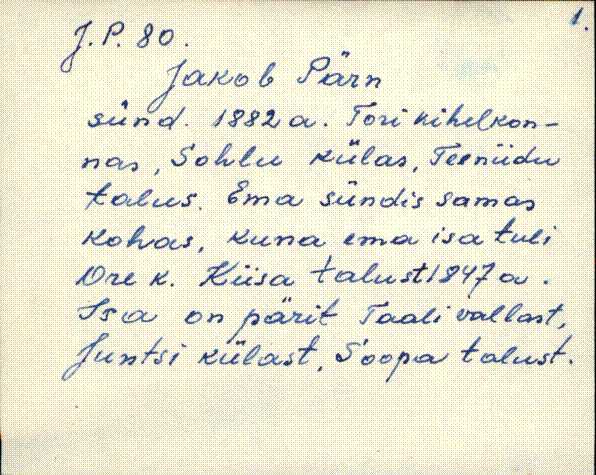 1.
J.P. 80.
Jakob Pärn
sünd. 1882 a. Tori kihelkon-
nas, Sohlu külas, Teeniidu
talus. Ema sündis samas
kohas, kuna ema isa tuli
Ore k. Kiisa talust 1847 a.
Isa on pärit Taali vallast,
Juntsi külast, Soopa talust.